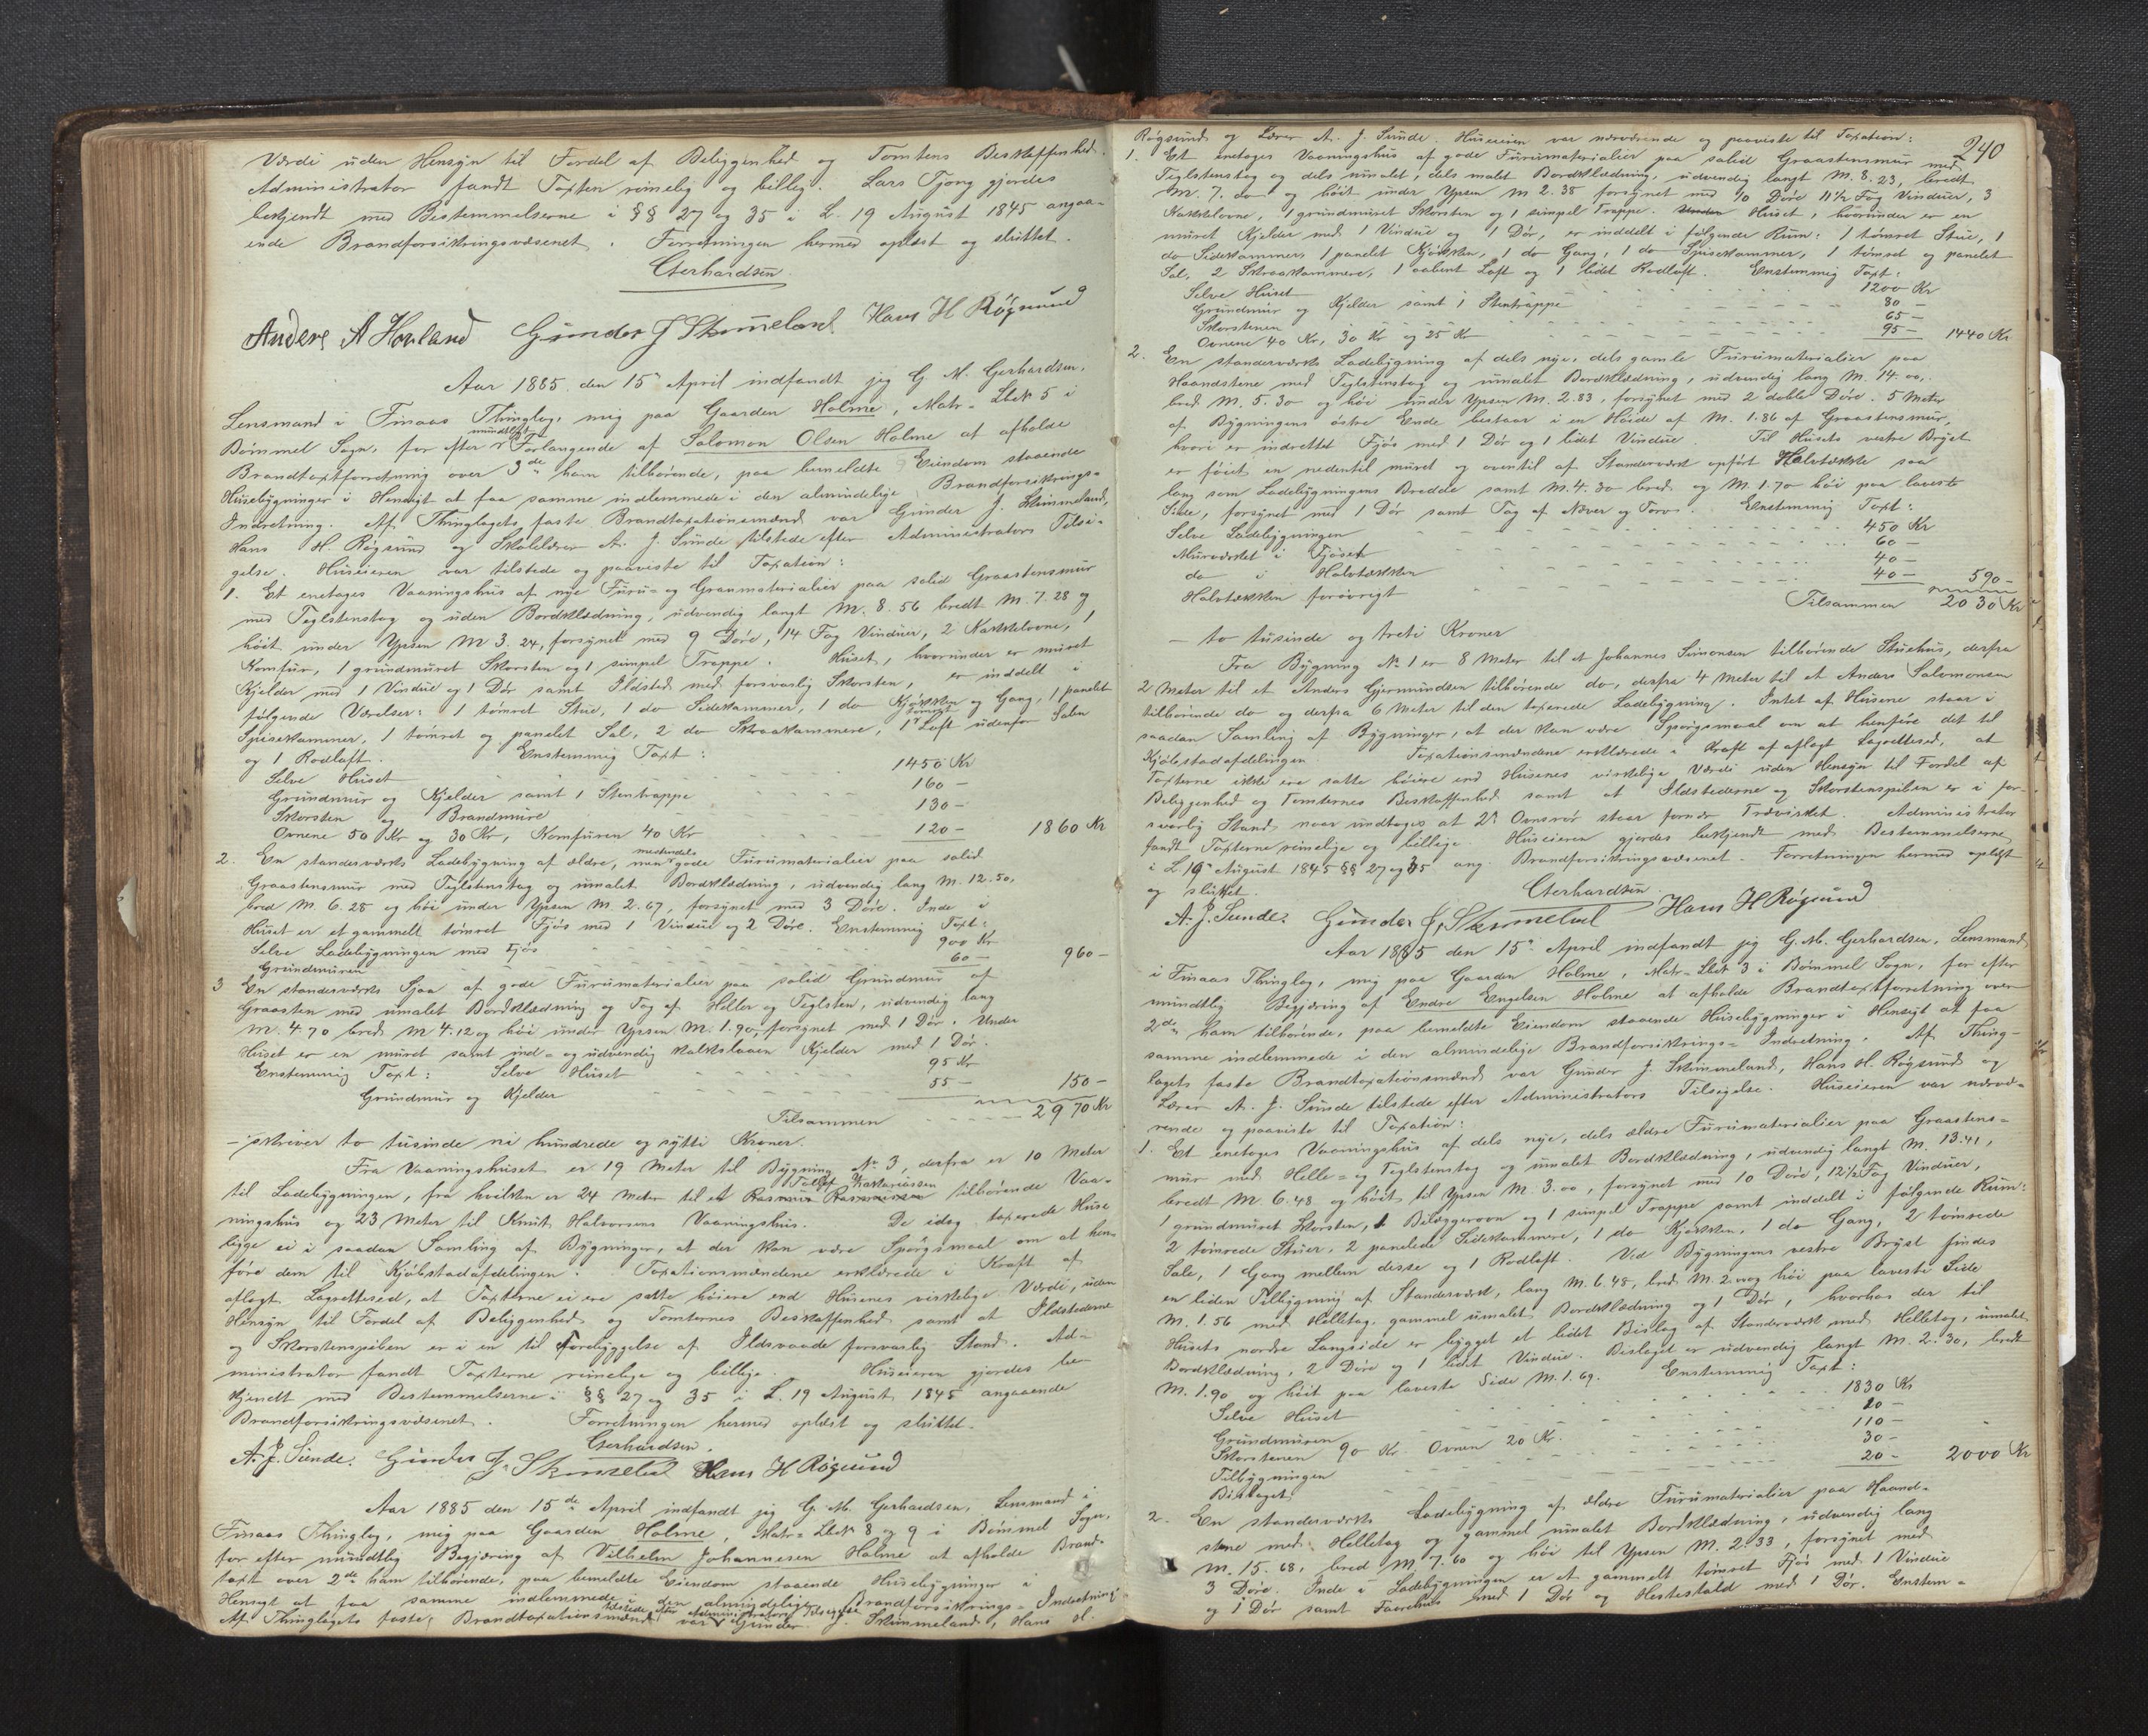 Værdi uden Hensyn til Fordel af Beliggenhed og Tomtens Beskaffenhed.
Administrator fandt Taxten rimelig og billig. Lars Tjong gjordes
bekjendt med Bestemmelserne i §§ 27 og 35 i L. 19 August 1845 angaa-
ende Brandforsikringsvæsenet. Forretningen hermed oplæst og sluttet.
Gerhardsen.
Anders A Hovland Gunder J Skimeland Hans H Røgsund
Aar 1885 den 15de April indfandt jeg G. M. Gerhardsen,
Lensmand i Finaas Thinglag, mig paa Gaarden Holme, Matr-Lbek 5 i
Bømmel Sogn, for efter mundtligt Forlangende af Salomon Olsen Holme at afholde
Brandtaxtforretning over 3de ham tilhørende, paa bemeldte Eiendom staaende
Husebygninger i Hensigt at faa samme indlemmede i den almindelige Brandforsikrings-
Indretning. Af Thinglagets faste Brandtaxationsmænd var Gunder J. Skimmeland,
Hans H. Røgsund og Skolelærer A. J. Sunde tilstede efter Administrators Tilsi-
gelse. Huseieren var tilstede og paaviste til Taxation:
1. Et enetages Vaaningshus af nye Furu- og Granmaterialier paa solid Graastensmur
med Teglstenstag og uden Bordklædning, udvendig langt M. 8.56 bredt M. 7.28 og
høit under Ypsen M 3.24, forsynet med 9 Døre, 14 Fag Vinduer, 2 Kakkelovne, 1
Komfur, 1 grundmuret Skorsten og 1 simpel Trappe. Huset, hvorunder er muret
Kjelder med 1 Vindue og 1 Dør samt Ildsted med forsvarlig Skorsten, er inddelt i
følgende Værelser: 1 tømret Stue, 1 do Sidekammer, 1 do Kjøkken og Gang, 1 panelet
Spisekammer, 1 tømret og panelet Sal, 2 do Skraakammere, 1 tømret Loft udenfor Salen
og 1 Rodloft. Enstemmig Taxt:
Selve Huset 1450 Kr
Grundmur og Kjelder samt 1 Stentrappe 160 —
Skorsten og Brandmure 130 —
Ovnene 50 Kr og 30 Kr, Komfuren 40 Kr 120 — 1860 Kr
2. En standerværks Ladebygning af ældre, men mestendels gode Furumaterialier paa solid
Graastensmur med Teglstenstag og umalet Bordklædning, udvendig lang M. 12.50,
bred M. 6.28 og høi under Ypsen M. 2.67, forsynet med 3 Døre. Inde i
Huset er et gammelt tømret Fjøs med 1 Vindue og 2 Døre. Enstemmig Taxt:
Selve Ladebygningen med Fjøs 900 Kr
Grundmuren 60 — 960 —
3 En standerværks Sjaa af gode Furumaterialier paa solid Grundmur af
Graasten med umalet Bordklædning og Tag af Heller og Teglsten, udvendig lang
M. 4.70 bred M 4.12 og høi under Ypsen M. 1.90, forsynet med 1 Dør. Under
Huset er en muret samt ind- og udvendig kalkslaaen Kjelder med 1 Dør.
Enstemmig Taxt: Selve Huset 95 Kr
Grundmur og Kjelder 55 — 150 —
Tilsammen 2970 Kr
— skriver to tusinde ni hundrede og sytti Kroner.
Fra Vaaningshuset er 19 Meter til Bygning No 3, derfra er 10 Meter
til Ladebygningen, fra hvilken er 24 Meter til et Rasmus Rasmussen Tollef Zakariassen tilhørende Vaa-
ningshus og 23 Meter til Knut Halvorsens Vaaningshus. De idag taxerede Huse
ligge ei i saadan Samling af Bygninger, at der kan være Spørgsmaal om at hen-
føre dem til Kjøbstadafdelingen. Taxationsmændene erklærede i Kraft af
aflagt Lagrettesed, at Taxterne ei ere satte høiere end Husenes virkelige Værdi, uden
Hensyn til Fordel af Beliggenhed og Tomternes Beskaffenhed samt at Ildstederne
og Skorstenspiben er i en til Forebyggelse af Ildsvaade forsvarlig Stand. Ad-
ministrator fandt Taxterne rimelige og billige. Huseieren gjordes be-
kjendt med Bestemmelserne i §§ 27 og 35 i L. 19 August 1845 angaaende
Brandforsikringsvæsenet. Forretningen hermed oplæst og sluttet.
Gerhardsen.
A. J. Sunde. Gunder J. Skimeland Hans H Røgsund
Aar 1885 den 15de April indfandt jeg G. M. Gerhardsen, Lensmand i
Finaas Thinglag, mig paa Gaarden Holme, Matr-Lbek 8 og 9 i Bømmel Sogn,
for efter mundtlig Begjæring af Vilhelm Johannesen Holme at afholde Brand-
taxt over 2de ham tilhørende, paa bemeldte Eiendom staaende Husebygninger i
Hensigt at faa samme indlemmede i den almindelige Brandforsikrings-Indretning.
Af Thinglagets faste Brandtaxationsmænd var tilstede efter Administrators Tilsigelse Gunder J. Skimmeland, Hans H.
240
Røgsund og Lærer A. J. Sunde. Huseieren var nærværende og paaviste til Taxation:
1. Et enetages Vaaningshus af gode Furumaterialier paa solid Graastensmur med
Teglstenstag og dels umalet, dels malet Bordklædning, udvendig langt M. 8.23, bredt
M. 7. do og høit under Ypsen M 2.38 forsynet med 10 Døre 11½ Fag Vinduer, 3
Kakkelovne, 1 grundmuret Skorsten og 1 simpel Trappe. Under Huset, hvorunder er en
muret Kjelder med 1 Vindue og 1 Dør, er inddelt i følgende Rum: 1 tømret Stue, 1
do Sidekammers 1 panelet Kjøkken, 1 do Gang, 1 do Spisekammer, 1 tømret og panelet
Sal, 2 Skraakammere, 1 aabent Loft og 1 lidet Rodloft. Enstemmig Taxt:
Selve Huset 1200 Kr
Grundmur og Kjelder samt 1 Stentrappe 80 —
Skorstenen 65 —
Ovnene 40 Kr, 30 Kr og 25 Kr 95 — 1440 Kr
2. En standerværks Ladebygning af dels nye, dels gamle Furumaterialier paa
Haandstene med Teglstenstag og umalet Bordklædning, udvendig lang M. 14.00,
bred M. 5.30 og høi under Ypsen M. 2.83, forsynet med 2 doble Døre. 5 Meter
af Bygningens østre Ende bestaar i en Høide af M. 1.86 af Graastensmur,
hvori er indrettet Fjøs med 1 Dør og 1 lidet Vindue. Til Husets vestre Bryst
er føiet en nedentil muret og oventil af Standerværk opført Halvtække saa
lang som Ladebygningens Bredde samt M. 4.30 bred og M. 1.70 høi paa laveste
Side, forsynet med 1 Dør samt Tag af Næver og Torv. Enstemmig Taxt:
Selve Ladebygningen 450 Kr
Murværket i Fjøset 60 —
do i Halvtækken 40 —
Halvtækken forøvrigt 40 — 590 —
Tilsammen 2030 Kr
— to tusinde og treti Kroner
Fra Bygning No 1 er 8 Meter til et Johannes Simonsen tilhørende Stuehus, derfra
2 Meter til et Anders Gjermundsen tilhørende do, derfra 4 Meter til et Anders Salomonsen
tilhørende do og derfra 6 Meter til den taxerede Ladebygning. Intet af Husene staar i
saadan Samling af Bygninger, at der kan være Spørgsmaal om at henføre det til
Kjøbstadafdelingen. Taxationsmændene erklærede i Kraft af aflagt Lagrettesed, at
Taxterne ikke ere satte høiere end Husenes virkelige Værdi uden Hensyn til Fordel af
Beliggenhed og Tomternes Beskaffenhed samt at Ildstederne og Skorstenspiben er i for-
svarlig Stand naar undtages at 2de Ovnsrør staar for nær Trævirket. Administrator
fandt Taxterne rimelige og billige. Huseieren gjordes bekjendt med Bestemmelserne
i L. 19de August 1845 §§ 27 og 35 ang. Brandforsikringsvæsenet. Forretningen hermed oplæst
og sluttet.
Gerhardsen.
A. J. Sunde. Gunder J, Skimeland Hans H Røgsund
Aar 1885 den 15de April indfandt jeg G. M. Gerhardsen, Lensmand
i Finaas Thinglag, mig paa Gaarden Holme, Matr-Lbek 3 i Bømmel Sogn, for efter
mundtlig Begjæring af Endre Engelsen Holme at afholde Brandtaxtforretning over
2de ham tilhørende, paa bemeldte Eiendom staaende Husebygninger i Hensigt at faa
samme indlemmede i den almindelige Brandforsikrings-Indretning. Af Thing-
lagets faste Brandtaxationsmænd var Gunder J. Skimmeland, Hans H. Røgsund og
Lærer A. J. Sunde tilstede efter Administrators Tilsigelse. Huseieren var nærvæ-
rende og paaviste til Taxation:
1. Et enetages Vaaningshus af dels nye, dels ældre Furumaterialier paa Graastens-
mur med Helle- og Teglstenstag og umalet Bordklædning, udvendig langt M. 13.41,
bredt M 6.48 og høit til Ypsen M. 3.00, forsynet med 10 Døre, 12½ Fag Vinduer,
1 grundmuret Skorsten, 1 Bilæggerovn og 1 simpel Trappe samt inddelt i følgende Rum:
2 tømrede Stuer, 2 panelede Sidekammere, 1 do Kjøkken, 1 do Gang, 2 tømrede
Sale, 1 Gang mellem disse og 1 Rodloft. Ved Bygningens vestre Bryst findes
en liden Tilbygning af Standerværk, lang M. 6.48, bred M. 2.00 og høi paa laveste Side
M. 1.56 med Helletag, gammel umalet Bordklædning og 1 Dør, hvorhos der til
Husets nordre Langside er bygget et lidet Bislag af Standerværk med Helletag, umalet
Bordklædning, 2 Døre og 1 lidet Vindue. Bislaget er udvendig langt M. 2.30, bredt
M. 1.90 og høit paa laveste Side M. 1.69. Enstemmig Taxt:
Selve Huset 1830 Kr
Grundmuren 10 —
Skorstenen 90 Kr. Ovnen 20 Kr. 110 —
Tilbygningen 30 —
Bislaget 20 — 2000 Kr
2. En standerværks Ladebygning af ældre Furumaterialier paa Haand-
stene med Helletag og gammel umalet Bordklædning, udvendig lang
M. 15.68, bred M. 7.60 og høi til Ypsen M. 2.33, forsynet med
3 Døre. Inde i Ladebygningen er et gammelt tømret Fjøs med 1 Vindue
og 1 Dør samt Faarehus med 1 Dør og Hestestald med 1 Dør. Enstem-